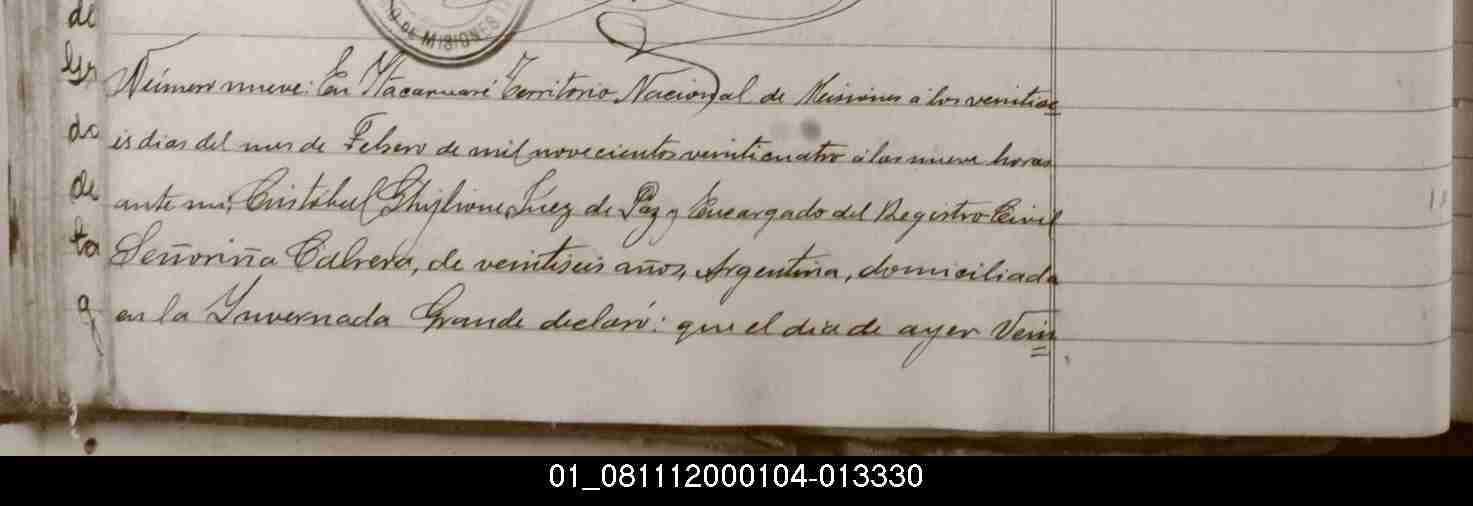 DE MISIONES
de
Número nueve: En Itacaruaré Territorio Nacional de Misiones a los veintise
do is dias del mes de Febrero de mil novecientos veinticuatro a las nueve horas
de ante mi, Cristobal Ghiglione Juez de Paz y Encargado del Registro Civil
ta Señoriña Cabrera, de veintiseis años, Argentina, domiciliada
en la Invernada Grande declaró: que el dia de ayer Vein
01_081112000104-013330